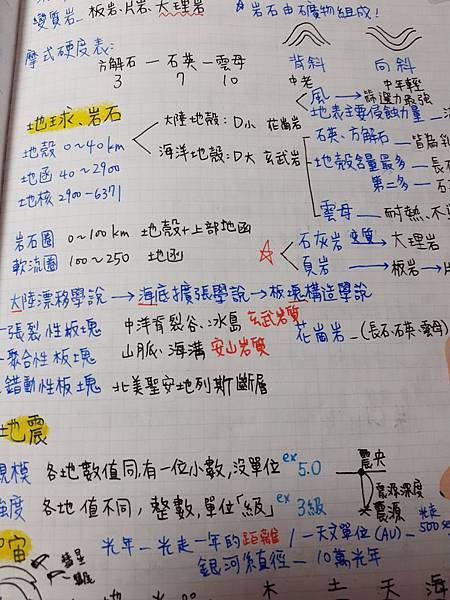 變質岩_ 板岩、片岩、大理岩
☆岩石由石礦物組成!
摩式硬度表:
方解石 — 石英 — 雲母
3 7 10
背斜 向斜
中老 中年輕
風 → 篩選力最強
地表主要侵蝕力量
地球、岩石
地殼 0~40km
大陸地殼:D小 花崗岩
海洋地殼:D大 玄武岩
地函 40~2900
地核 2900-6371
石英、方解石 — 皆為乳
地殼含量最多 — 長石
第二多 — 石
雲母 — 耐熱、不
岩石圈 0~100km 地殼+上部地函
軟流圈 100~250 地函
☆ 石灰岩 變質→ 大理岩
頁岩 → 板岩 → 片
大陸漂移學說 → 海底擴張學說 → 板塊構造學說
張裂性板塊 中洋脊裂谷、冰島 玄武岩質
花崗岩_(長石、石英、雲母)
聚合性板塊 山脈、海溝 安山岩質
錯動性板塊 北美聖安地列斯斷層
地震
規模 各地數值同,有一位小數,沒單位 ex 5.0
強度 各地值不同,整數,單位「級」 ex 3級
震央
震源深度
震源
宙
光年 — 光走一年的距離 / 一天文單位(AU) — 光走 500 se
銀河系直徑 — 10萬光年
彗星
木 土 天 海